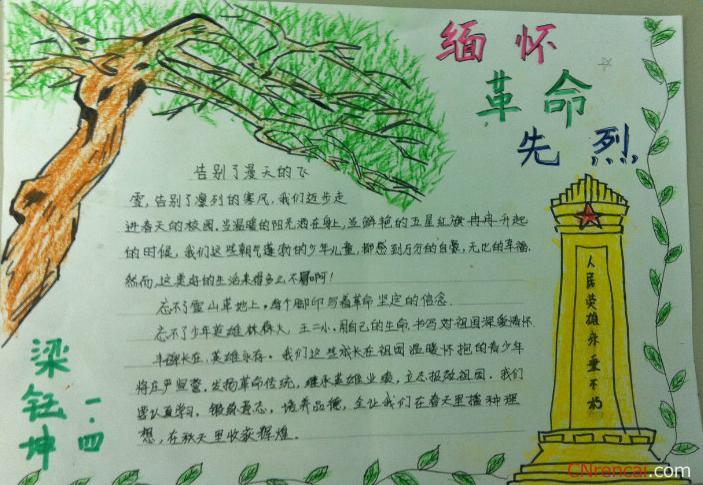 缅怀
革命
先烈
告别了漫天的飞
雪,告别了凛列的寒风,我们迈步走
进春天的校园。当温暖的阳光洒在身上,当鲜艳的五星红旗冉冉升起
的时候,我们这些朝气蓬勃的少年儿童,都感到万分的自豪,无比的幸福,
然而,这美好的生活来得多么不易啊!
忘不了雪山草地上,每个脚印写着革命坚定的信念.
忘不了少年英雄林森火、王二小,用自己的生命,书写对祖国深爱情怀.
丰碑长在,英雄永存。我们这些成长在祖国温暖怀抱的青少年
将庄严宣誓,发扬革命传统,继承英雄业绩,立志报效祖国。我们
要认真学习,锻炼意志,培养品德,全让我们在春天里播种理
想,在秋天里收获辉煌。
人民英雄永垂不朽
梁钰坤
一.四
CNrencai.com